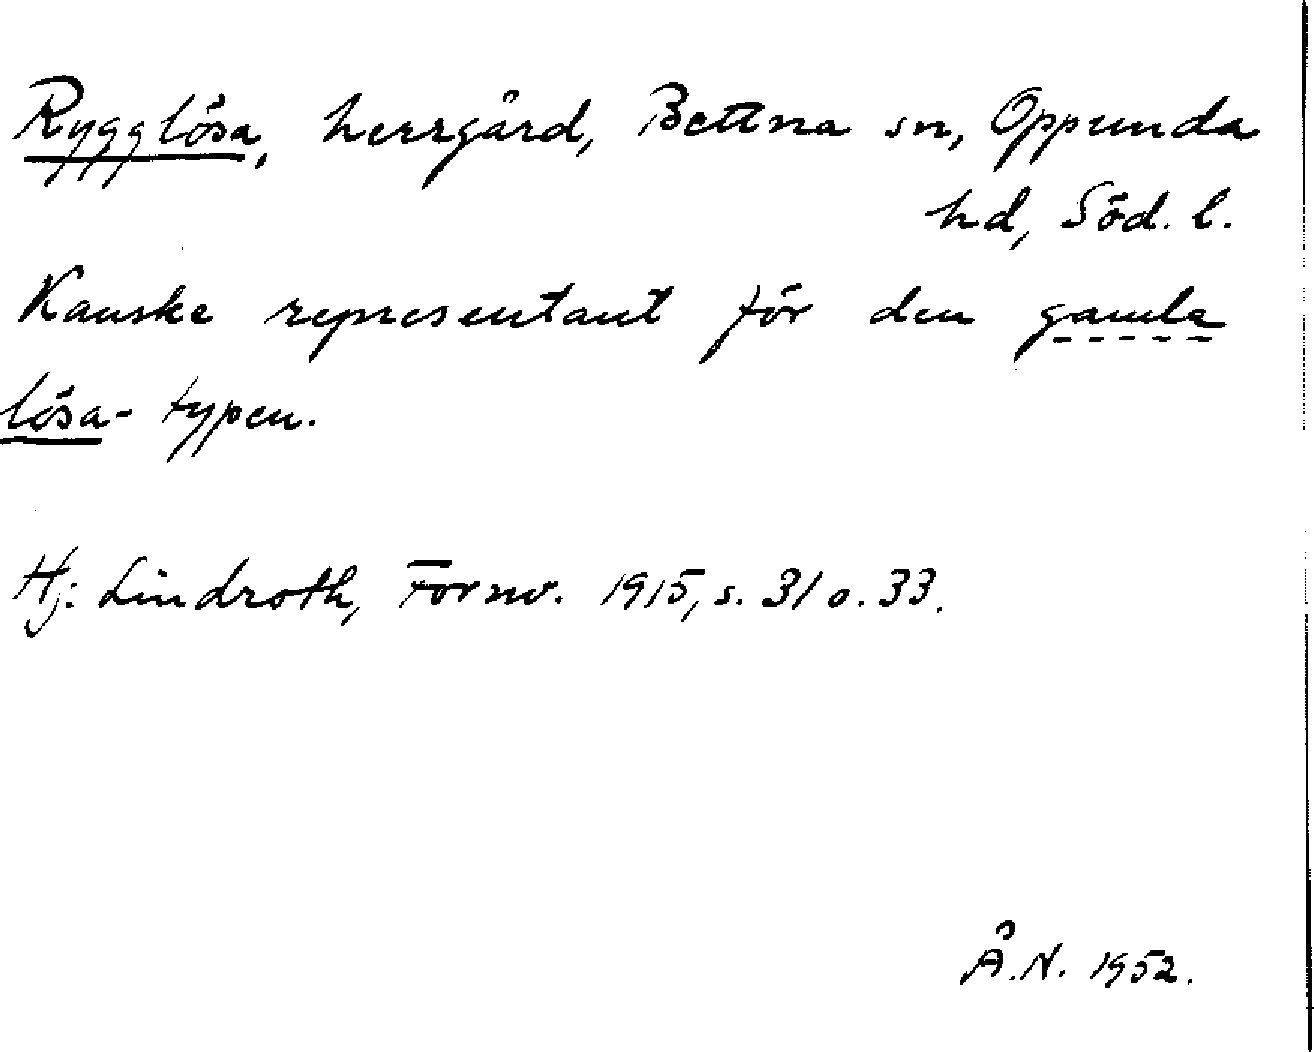 Rygglösa, herrgård, Bettna sn, Oppunda
hd, Söd. l.
Kanske representant för den gamla
lösa-typen.
Hj. Lindroth, Fornv. 1915, s. 31 o. 33.
Å.N. 1952.